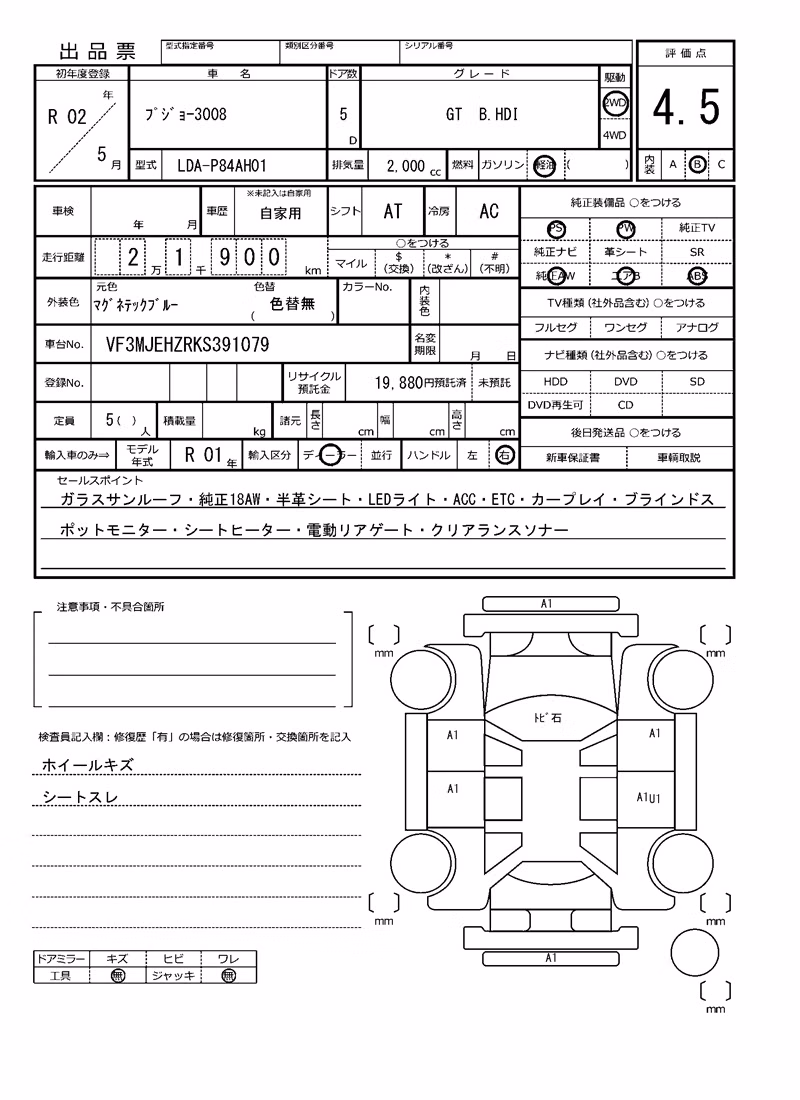 出品票
型式指定番号 類別区分番号 シリアル番号
評価点
4.5
初年度登録 車名 ドア数 グレード 駆動
R 02 年 5 月
プジョー3008
5 D
GT B.HDI
2WD
4WD
型式 LDA-P84AH01 排気量 2,000 cc 燃料 ガソリン 軽油 ( )
内装 A B C
車検 年 月 車歴 ※未記入は自家用 自家用 シフト AT 冷房 AC
走行距離 2 万 1 千 9 0 0 km
○をつける
マイル $(交換) *(改ざん) #(不明)
外装色 元色 マグネテックブルー 色替 ( 色替無 ) カラーNo. 内装色
車台No. VF3MJEHZRKS391079 名変期限 月 日
登録No. リサイクル預託金 19,880円預託済 未預託
定員 5( ) 人 積載量 kg 諸元 長さ cm 幅 cm 高さ cm
輸入車のみ⇒ モデル年式 R 01 年 輸入区分 ディーラー 並行 ハンドル 左 右
純正装備品 ○をつける
PS PW 純正TV
純正ナビ 革シート SR
純正AW エアB ABS
TV種類(社外品含む)○をつける
フルセグ ワンセグ アナログ
ナビ種類(社外品含む)○をつける
HDD DVD SD
DVD再生可 CD
後日発送品 ○をつける
新車保証書 車輌取説
セールスポイント
ガラスサンルーフ・純正18AW・半革シート・LEDライト・ACC・ETC・カープレイ・ブラインドス
ポットモニター・シートヒーター・電動リアゲート・クリアランスソナー
注意事項・不具合箇所
検査員記入欄：修復歴「有」の場合は修復箇所・交換箇所を記入
ホイールキズ
シートスレ
ドアミラー キズ ヒビ ワレ
工具 無 ジャッキ 無
A1
mm mm
トビ石
A1 A1
A1 A1U1
mm mm
A1
mm